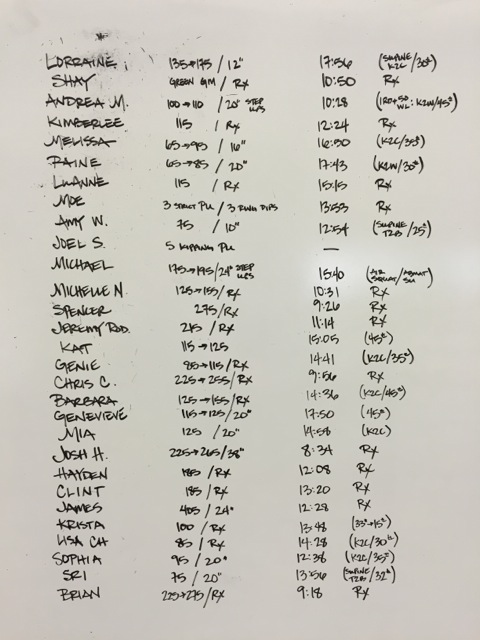 LORRAINE 135→175 / 12" 17:56 (SUPINE K2C/30#)
SHAY GREEN GM / RX 10:50 RX
ANDREA M. 100→110 / 20" STEP UPS 10:28 WL: K2W/45#)
KIMBERLEE 115 / RX 12:24 RX
MELISSA 65→95 / 16" 16:50 (K2C/35#)
RAINE 65→85 / 20" 17:43 (K2W/30#)
LUANNE 115 / RX 15:15 RX
MOE 3 STRICT PU / 3 RING DIPS 13:53 RX
AMY W. 75 / 10" 12:54 (SUPINE T2B/25#)
JOEL S. 5 KIPPING PU —
MICHAEL 175→195/24" STEP UPS 15:40 (AIR SQUAT/ABMAT SU)
MICHELLE N. 125→155/RX 10:31 RX
SPENCER 275/RX 9:26 RX
JEREMY ROD. 215/RX 11:14 RX
KAT 115→125 15:05 (45#)
GENIE 85→115/RX 14:41 (K2C/35#)
CHRIS C. 225→255/RX 9:56 RX
BARBARA 125→155/RX 14:36 (K2C/45#)
GENEVIEVE 115→125/20" 17:50 (45#)
MIA 125 /20" 14:58 (K2C)
JOSH H. 225→265/38" 8:34 RX
HAYDEN 185/RX 12:08 RX
CLINT 185/RX 13:20 RX
JAMES 405/24" 12:28 RX
KRISTA 100 /RX 13:48 (35#→15#)
LISA CH 85/RX 14:28 (K2C/30#)
SOPHIA 95 /20" 12:38 (K2C/35#)
SRI 75 /20" 13:56 (SUPINE T2B/32#)
BRIAN 225→275/RX 9:18 RX